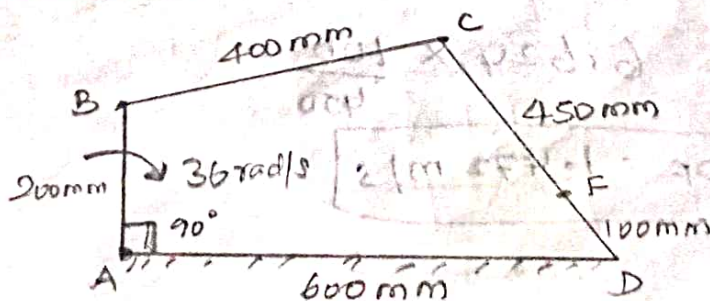 C
400mm
B
450mm
200mm
36 rad/s
F
90°
100mm
A
600mm
D